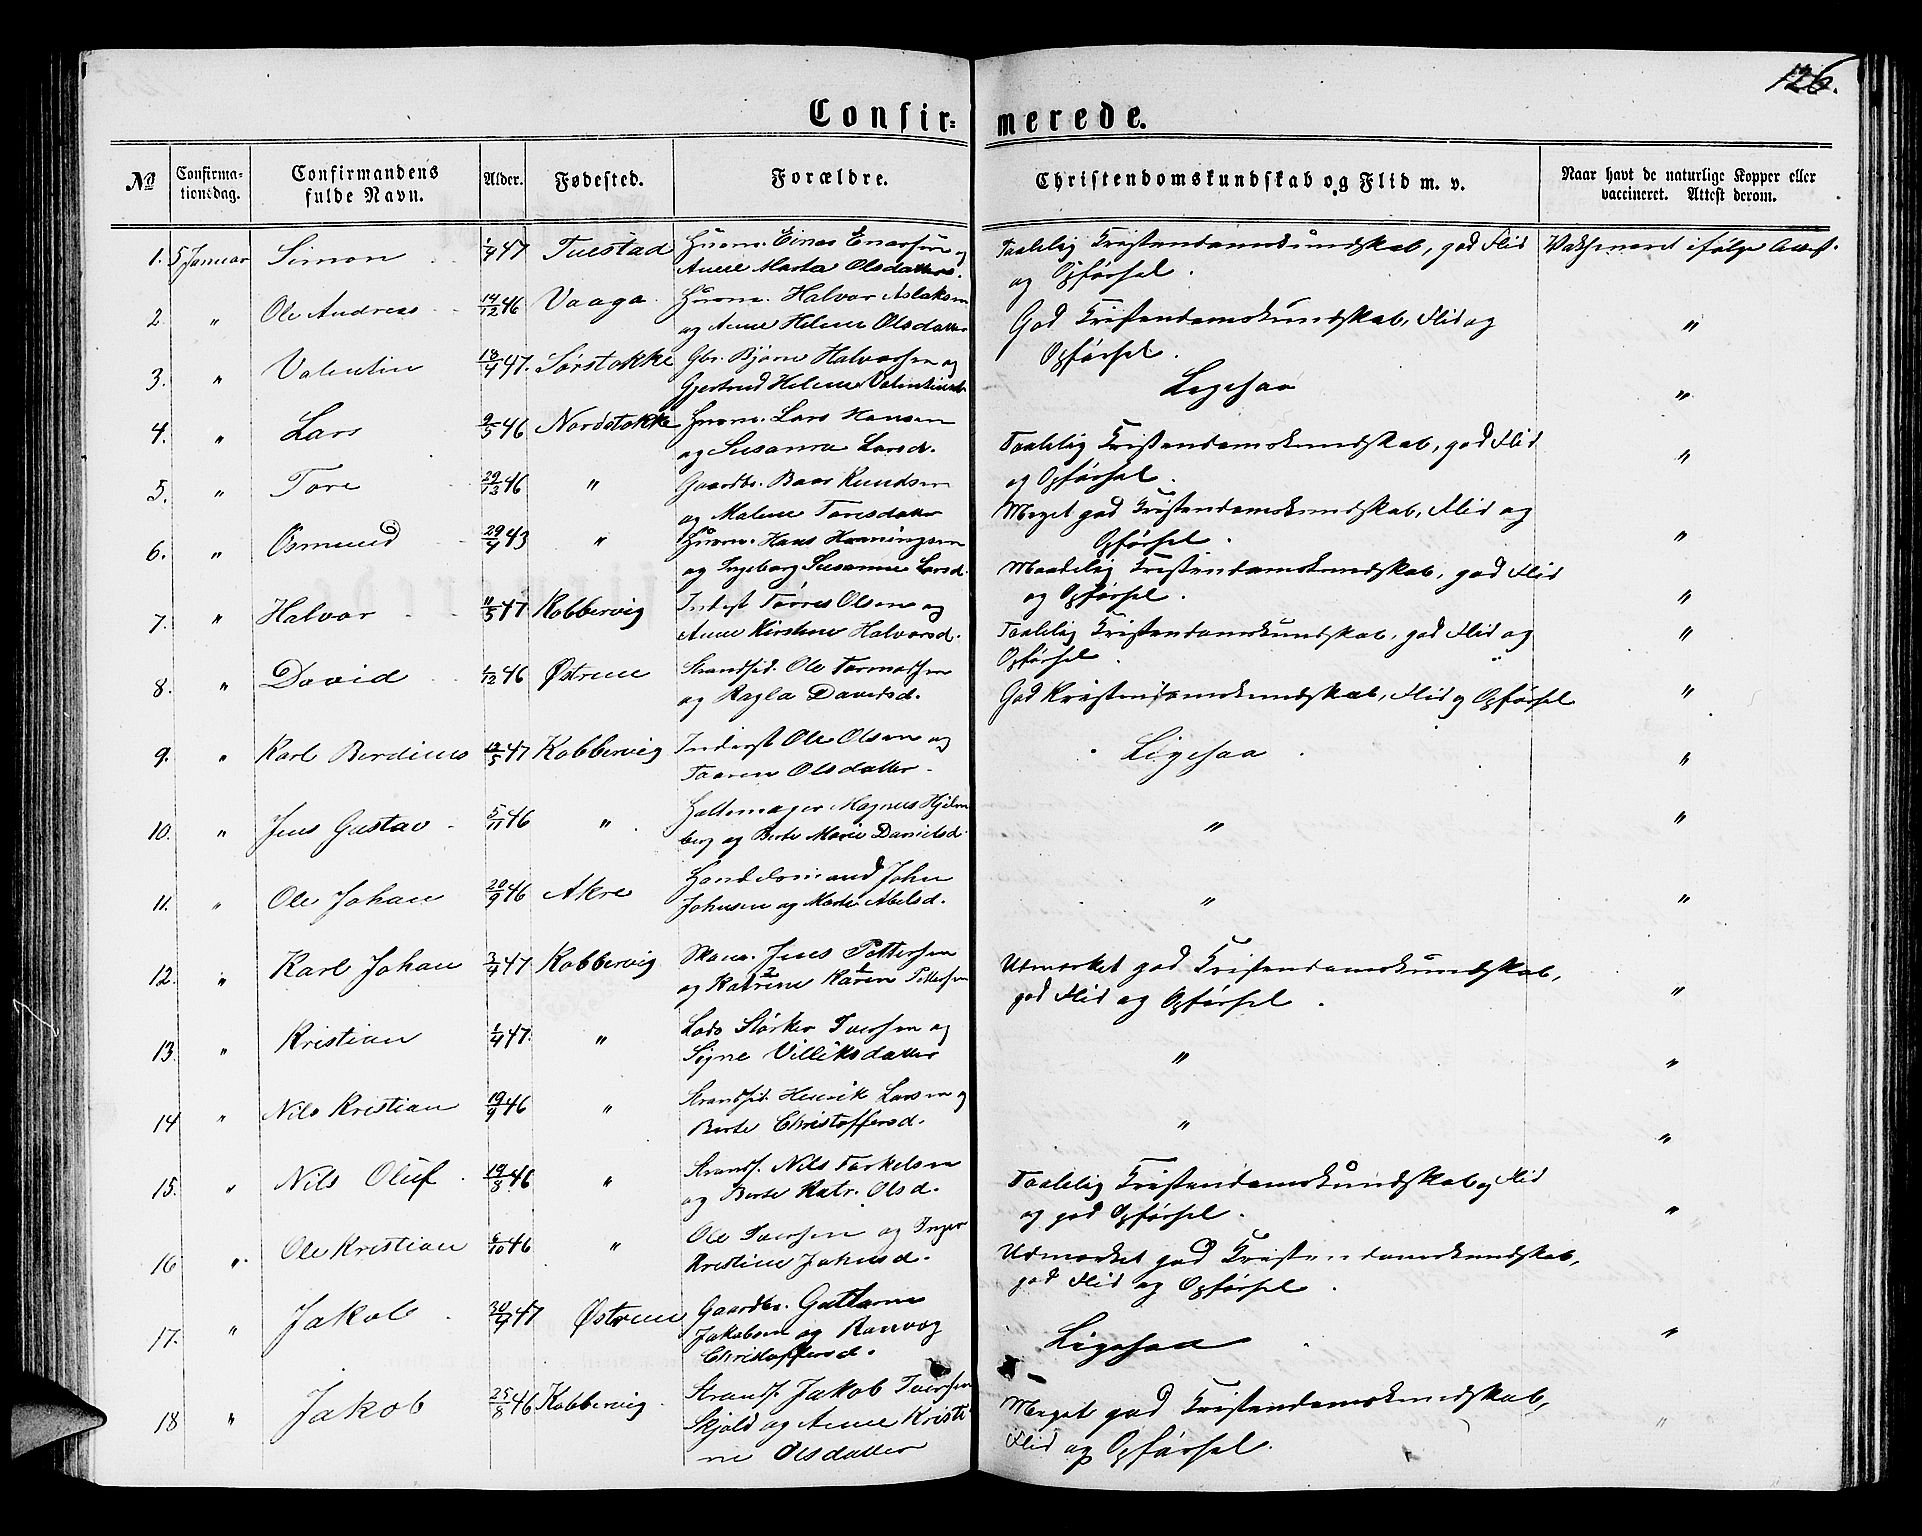 126.
Confirmerede.
No Confirmationsdag. Confirmandens fulde Navn. Alder. Fødested. Forældre. Christendomskundskab og Flid m. v. Naar havt de naturlige Kopper eller vaccineret. Attest derom.
1. 5 Januar Simon 1/4 47 Tuestad Husm. Einar Enarsen og
Anne Marta Olsdatter. Taalelig Kristendomskundskab, god Flid
og Opførsel. Vaksineret ifølge Attest.
2. " Ole Andreas 14/12 46 Vaaga Husm. Halvor Aslaksen
og Anne Helene Olsdatter God Kristendomskundskab, Flid og
Opførsel. "
3. " Valentin 18/4 47. Sørstokke Gbr. Bjørn Halvorsen og
Gjertrud Helene Valentinsd. Ligesaa "
4. " Lars 9/5 46 Nordstokke Husm. Lars Hansen
og Susanna Larsd. Taalelig Kristendomskundskab, god Flid
og Opførsel. "
5. " Tore 29/12 46 " Gaardbr. Baar Knudsen
og Malene Toresdatter Meget god Kristendomskundskab, Flid og
Opførsel. "
6. " Osmund 29/4 43 " Husm. Hans Henningsen
og Ingeborg Susanne Larsd. Maadelig Kristendomskundskab, god Flid
og Opførsel. "
7. " Halvor 11/5 47 Kobbervig Inderst Tørres Olsen og
Anne Kirstine Halvorsd. Taalelig Kristendomskundskab, god Flid og
Opførsel. "
8. " David 1/12 46 Østrem Strandsid. Ole Tormodsen
og Ragla Davidsd. God Kristendomskundskab, Flid og Opførsel "
9. " Karl Berdines 12/5 47 Kobbervig Inderst Ole Olsen og
Taaren Olsdatter. Ligesaa "
10. " Jens Gustav 5/11 46 " Hattemager Magnus Hjelm
berg og Berte Marie Danielsd. " "
11. " Ole Johan 20/9 46 Akre Handelsmand John
Johnsen og Marte Abelsd. " "
12. " Karl Johan 3/4 47 Kobbervig Skom. Jens Pettersen
og Katrine Karen Pettersen Udmærket god Kristendomskundskab,
god Flid og Opførsel. "
13. " Kristian 1/4 47. " Lods Størker Iversen og
Signe Villiksdatter " "
14 " Nils Kristian 19/9 46 " Strandsid. Henrik Larsen og
Berte Christoffersd. " "
15. " Nils Oluf 19/8 46 " Strands. Nils Torkelsen
og Berte Katr. Olsd. Taalelig Kristendomskundskab og Flid
og god Opførsel. "
16 " Ole Kristian 6/10 46 " Ole Iversen og Inger
Kristine Jakobsd. Udmærket god Kristendomskundskab,
god Flid og Opførsel.
17. " Jakob 30/4 47 Østrem Gaardbr. Guttorm
Jakobsen og Ranvog
Christoffersd. Ligesaa "
18 " Jakob 25/8 46 Kobbervig. Strands. Jakob Iversen
Skjold og Anne Kristi
ne Olsdatter Meget god Kristendomskundskab,
Flid og Opførsel. "